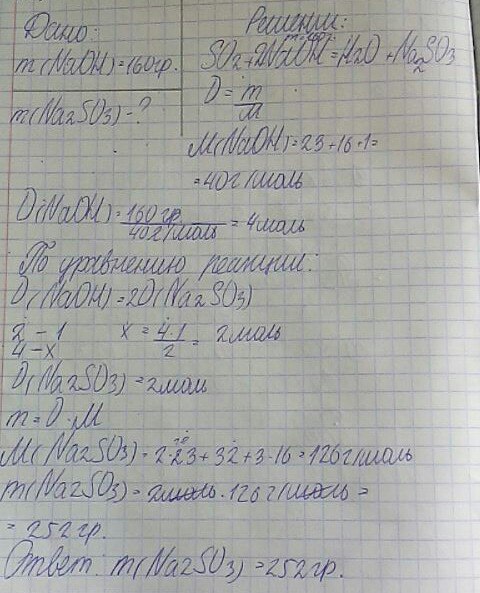 Дано:
Решение:
m(NaOH)=160гр.
SO2+2NaOH=H2O+Na2SO3
m(Na2SO3)-?
D=m/M
M(NaOH)=23+16+1=
=40г/моль
D(NaOH)=160гр./40г/моль=4моль
По уравнению реакции:
D(NaOH)=2D(Na2SO3)
2-1
x=4·1/2=2моль
4-x
D(Na2SO3)=2моль
m=D·M
M(Na2SO3)=2·23+32+3·16=126г/моль
m(Na2SO3)=2моль·126г/моль=
=252гр.
Ответ: m(Na2SO3)=252гр.